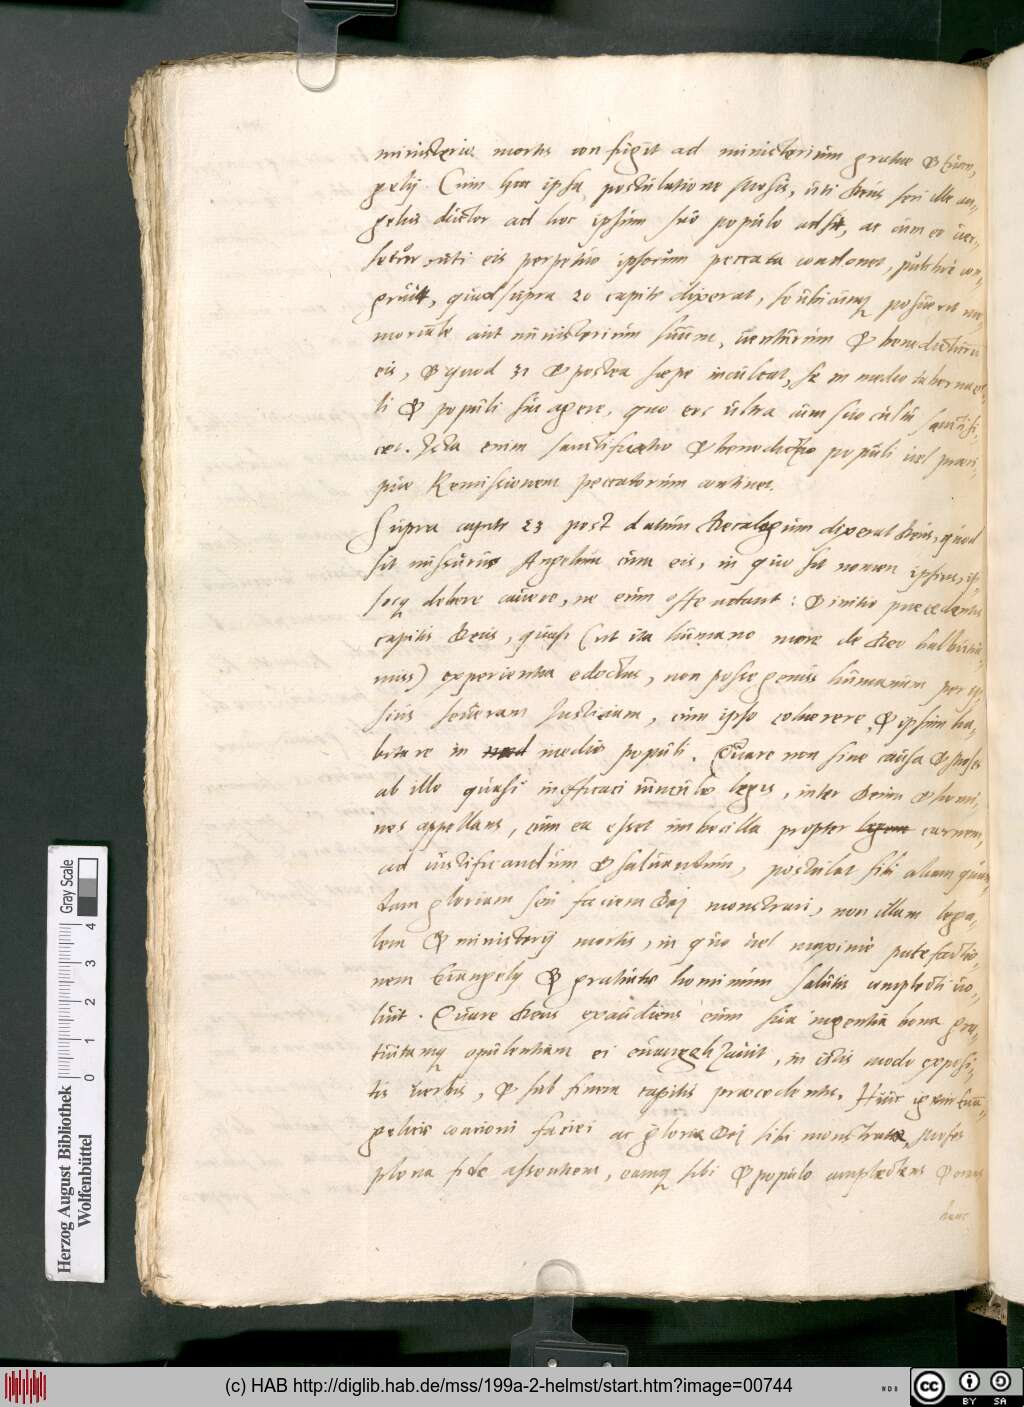 ministerio mortis confugit ad ministerium gratiae & Euan,
gelij. Cum hac ipsa postulatione Mosis, uti Deus seu ille an,,
gelus ductor ad hoc ipsum suo populo adsit, ac cum eo uer,,
setur, uti eis perpetuo ipsorum peccata condonet, pulchre con,,
gruit, quod supra 20 capite dixerat, se ubicunq posuerit me,
moriale aut ministerium suum, uenturum & benedicturum
eis, & quod 31 & postea saepe inculcat, se in medio tabernacu,
li & populi sui agere, quo eos ultra cum suo cultu sanctifi,,
cet. Ista enim sanctificatio & benedictio populi uel praeci,
pue Remissionem peccatorum continet.
Supra capite 23 post datum Decalogum dixerat Deus, quod
sit missurus Angelum cum eis, in quo sit nomen ipsius, ip,
socq debere cauere, ne eum offendant: & initio praecedentis
capitis Deus, quasi (ut ita humano more de Deo balbutia,
mus) experientia edoctus, non posse genus humanum per ip,
sius seueram Iusticiam, cum ipso cohaerere, & ipsum ha,
bitare in medio populi. Quare non sine causa & Moses
ab illo quasi inefficaci uinculo legis, inter Deum & homi,
nes appellans, cum ea esset imbecilla propter legem carnem,
ad iustificandum & saluandum, postulat sibi aliam quan,
dam gloriam seu faciem Dei monstrari, non illam lega,,
lem & ministerij mortis, in quo uel maxime patefactio,,
nem Euangelij & gratuitae hominum salutis complecti uo,,
luit. Quare Deus exaudiens eum sua ingentia bona gra,,
tuitamq opulentiam ei euangelizauit, in istis modo exposi,,
tis uerbis, & sub finem capitis praecedentis. Huic igitur Euan,,
gelicae concioni faciei ac gloriae Dei sibi monstratae, Moses
plena fide assentiens, eamq sibi & populo amplectens & orans
hunc
Herzog August Bibliothek
Wolfenbüttel
0 1 2 3 4
Gray Scale
(c) HAB http://diglib.hab.de/mss/199a-2-helmst/start.htm?image=00744
cc BY SA